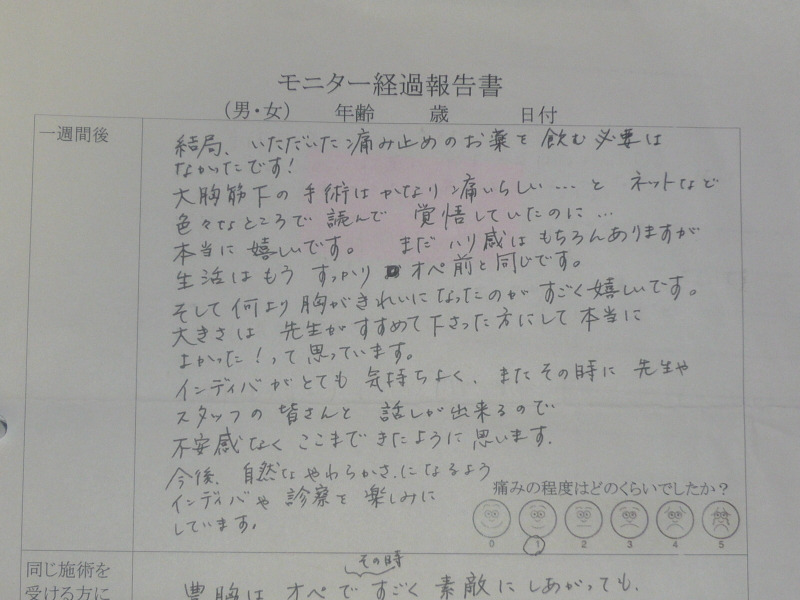 モニター経過報告書
（男・女）　年齢　　歳　　　日付
一週間後
結局、いただいた痛み止めのお薬を飲む必要は
なかったです!
大胸筋下の手術はかなり痛いらしい…と ネットなど
色々なところで読んで 覚悟していたのに…
本当に嬉しいです。 まだハリ感はもちろんありますが
生活はもう すっかり オペ前と同じです。
そして何より胸がきれいになったのが すごく嬉しいです。
大きさは 先生がすすめて下さった方にして本当に
よかった!って思っています。
インディバがとても 気持ちよく、またその時に 先生や
スタッフの皆さんと 話しが出来るので
不安感なく ここまできたように思います.
今後、自然なやわらかさになるよう
インディバや診療を楽しみに
しています。
痛みの程度はどのくらいでしたか？
0 1 2 3 4 5
同じ施術を
受ける方に
その時
豊胸は オペで すごく 素敵に しあがっても、